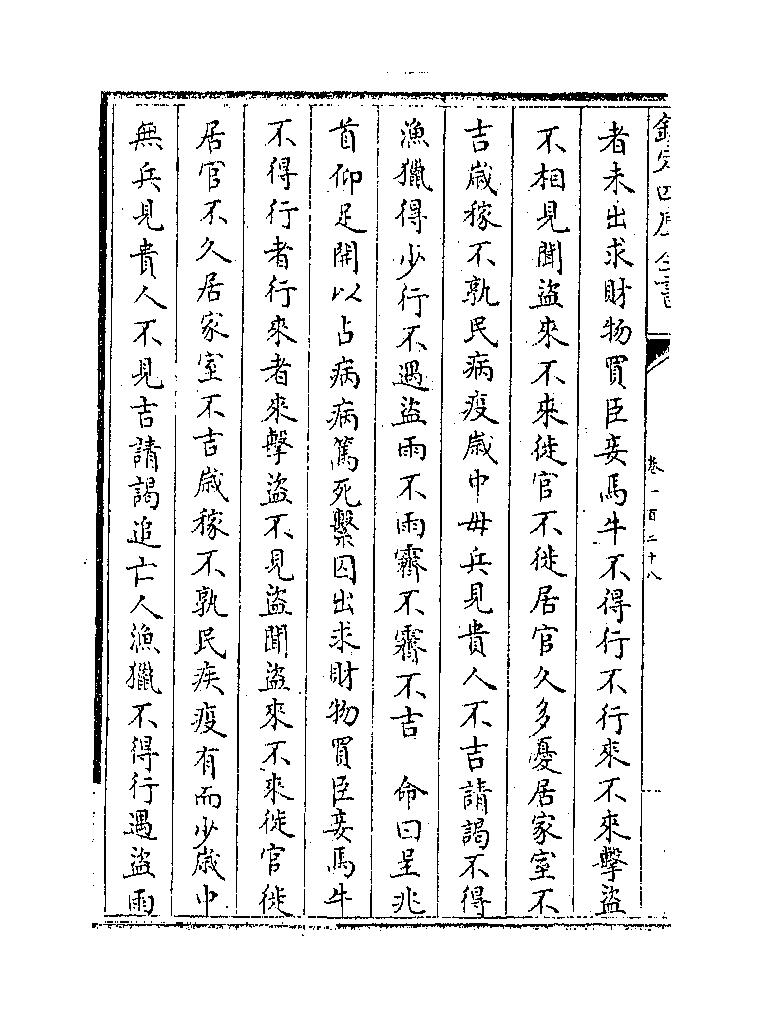 欽定四庫全書
卷一百二十八
者未出求財物買臣妾馬牛不得行不行來不來擊盜
不相見聞盜來不來徙官不徙居官久多憂居家室不
吉嵗稼不孰民病疫嵗中毋兵見貴人不吉請謁不得
漁獵得少行不遇盜雨不雨霽不霽不吉　命曰呈兆
首仰足開以占病病篤死繫囚出求財物買臣妾馬牛
不得行者行來者來擊盜不見盜聞盜來不來徙官徙
居官不久居家室不吉嵗稼不孰民疾疫有而少嵗中
無兵見貴人不見吉請謁追亡人漁獵不得行遇盜雨